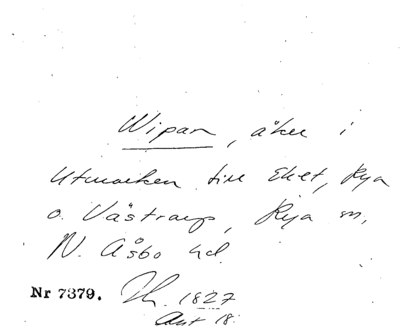 Wipan, åker i
Utmarken till Eket, Rya
o. Västraup, Rya sn,
N. Åsbo hd.
Nr 7379. 1827
Akt 18.